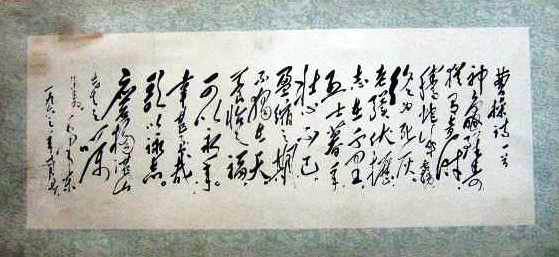 曹操诗一首
神龟虽寿
猶有竟时
腾蛇乘雾
终为土灰
老骥伏枥
志在千里
烈士暮年
壮心不已
盈缩之期
不独在天
养怡之福
可以永年
幸甚至哉
歌以咏志
同志之嘱
毛泽东
一九六